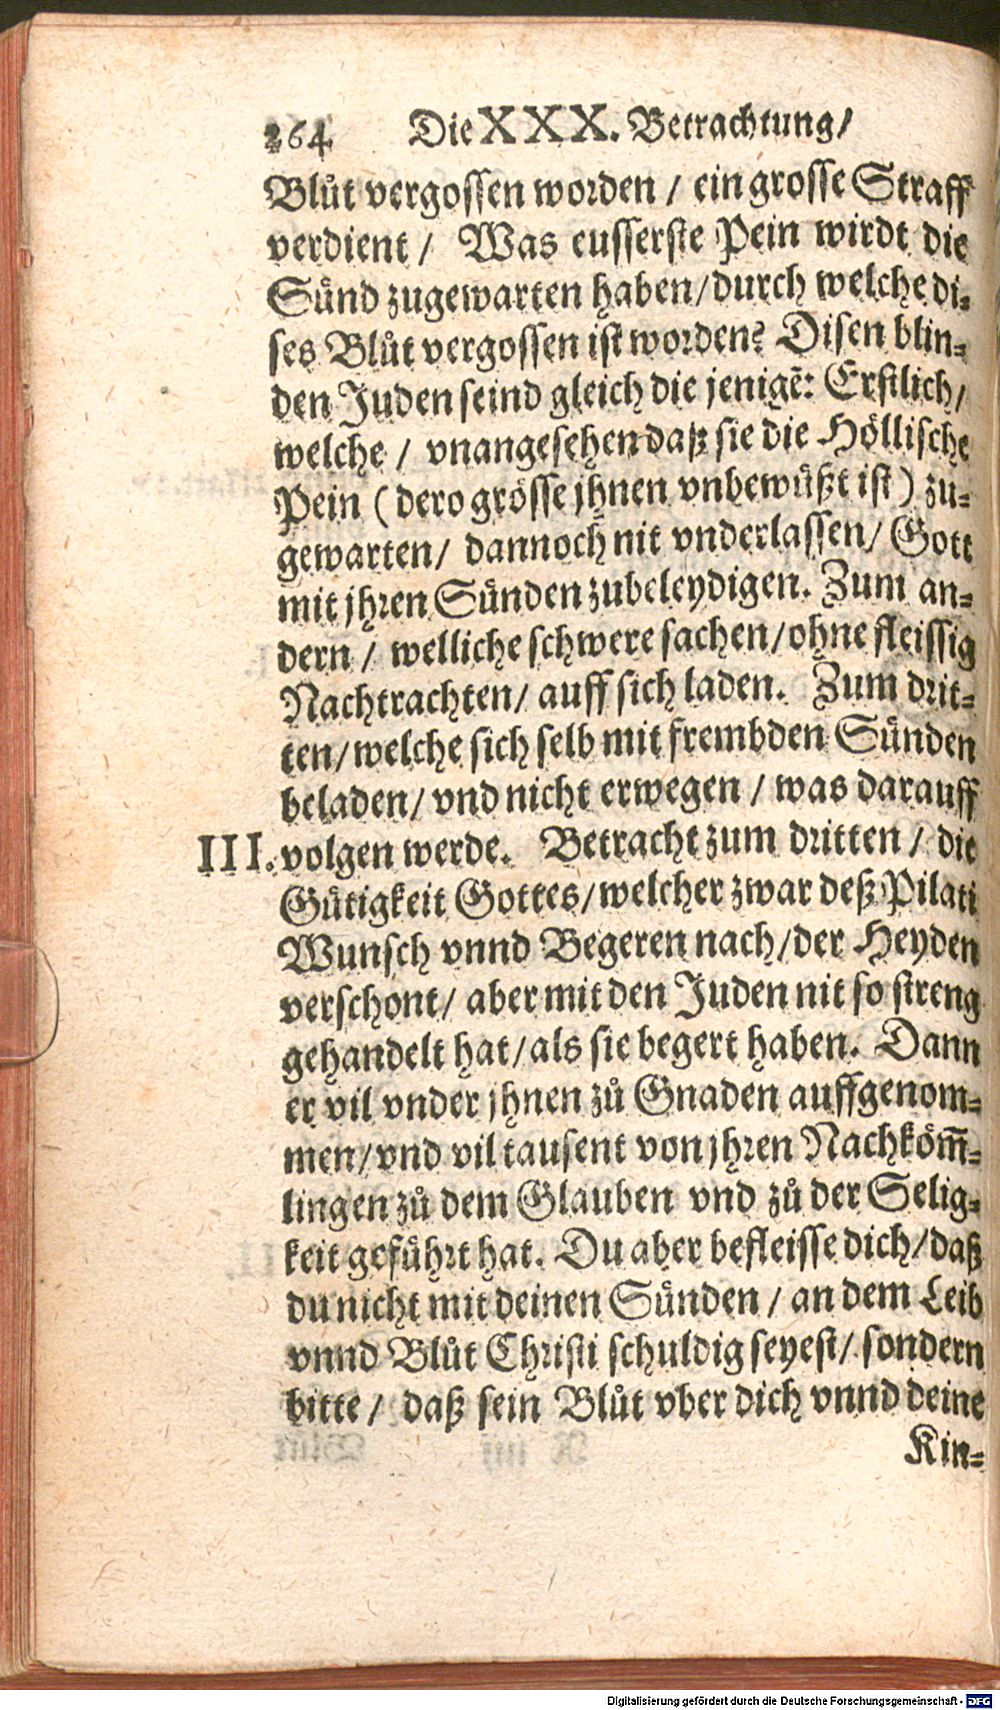 264 Die XXX. Betrachtung/
Blůt vergossen worden / ein grosse Straff
verdient / Was eusserste Pein wirdt die
Sünd zugewarten haben/durch welche di-
ses Blůt vergossen ist worden? Disen blin-
den Juden seind gleich die jenigẽ: Erstlich/
welche / vnangesehen daß sie die Höllische
Pein ( dero grösse jhnen vnbewüßt ist ) zu-
gewarten/ dannoch nit vnderlassen/ Gott
mit jhren Sünden zubeleydigen. Zum an-
dern / welliche schwere sachen/ohne fleissig
Nachtrachten/ auff sich laden. Zum drit-
ten/welche sich selb mit frembden Sünden
beladen/ vnd nicht erwegen / was darauff
III. volgen werde. Betracht zum dritten / die
Gütigkeit Gottes/welcher zwar deß Pilati
Wunsch vnnd Begeren nach/der Heyden
verschont/ aber mit den Juden nit so streng
gehandelt hat/als sie begert haben. Dann
er vil vnder jhnen zů Gnaden auffgenom-
men/vnd vil tausent von jhren Nachköm̃-
lingen zů dem Glauben vnd zů der Selig-
keit geführt hat. Du aber befleisse dich/daß
du nicht mit deinen Sünden / an dem Leib
vnnd Blůt Christi schuldig seyest/ sondern
bitte / daß sein Blůt vber dich vnnd deine
Kin-
Digitalisierung gefördert durch die Deutsche Forschungsgemeinschaft - DFG